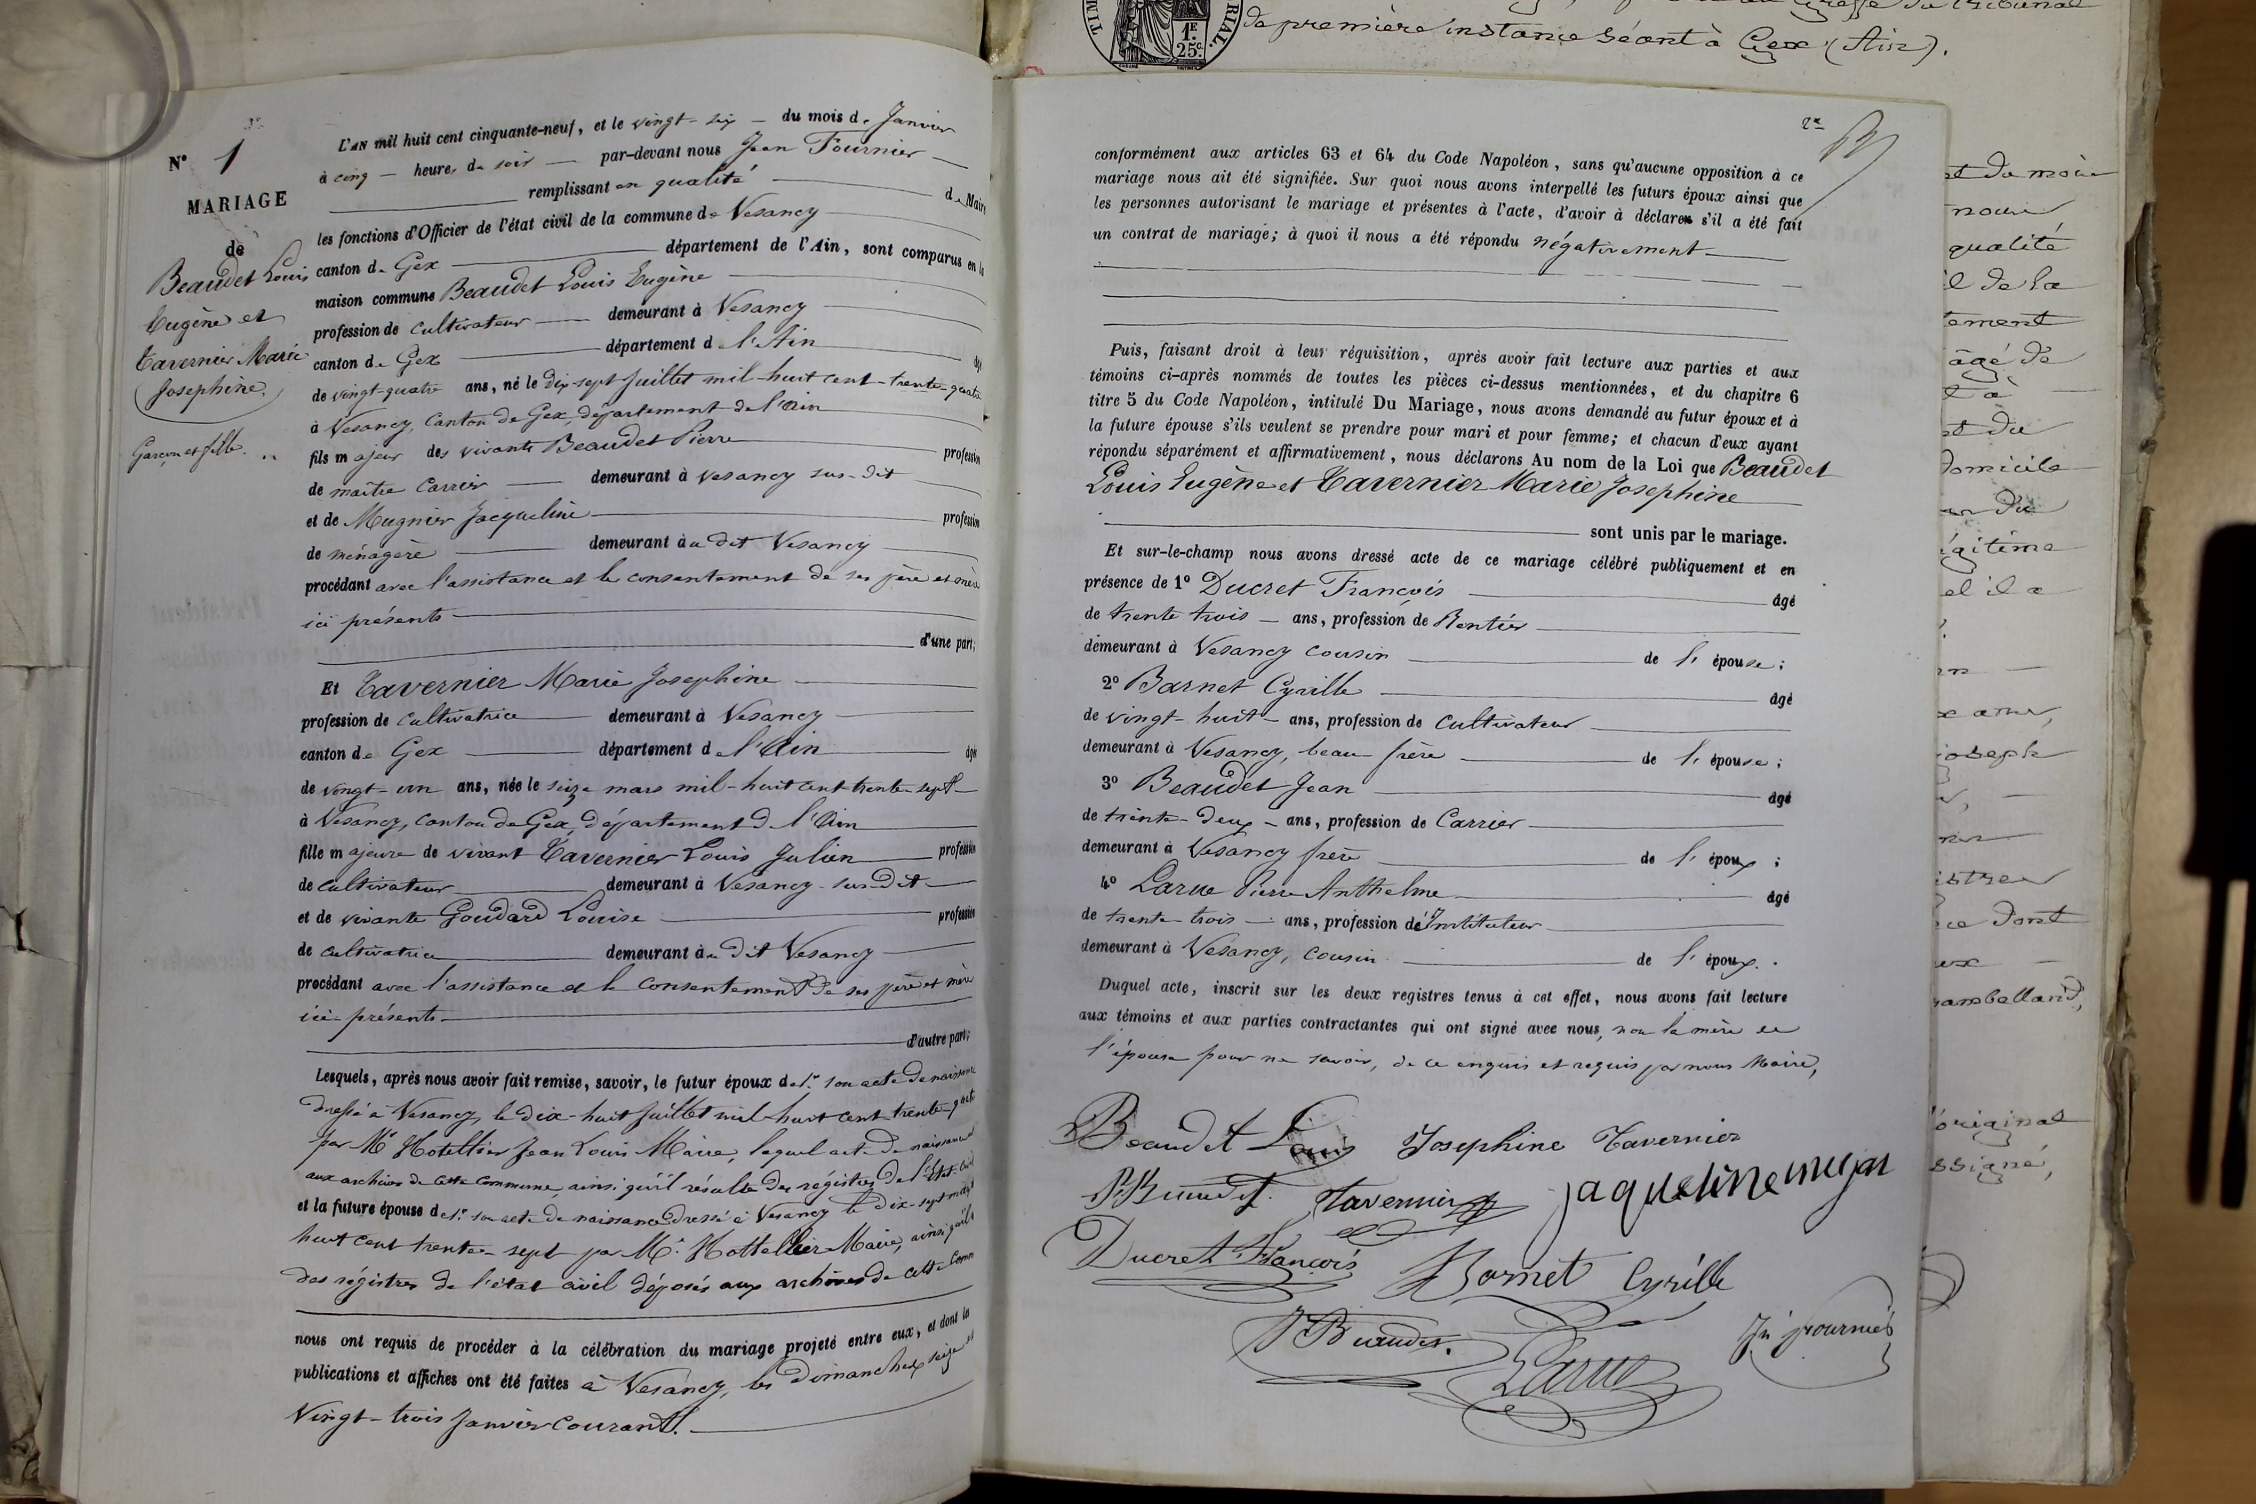 N° 1
MARIAGE
de
Beaudet Louis
Eugène et
Tavernier Marie
Josephine.
Garçon et fille.
L'AN mil huit cent cinquante-neuf, et le vingt-six — du mois de Janvier
à cinq — heures du soir — par-devant nous Jean Fournier —
remplissant en qualité de Maire
les fonctions d'Officier de l'état civil de la commune de Vesancy
canton de Gex département de l'Ain, sont comparus en la
maison commune Beaudet Louis Eugène
profession de cultivateur demeurant à Vesancy
canton de Gex département de l'Ain âgé
de vingt-quatre ans, né le dix-sept Juillet mil-huit cent-trente-quatre
à Vesancy, Canton de Gex, département de l'Ain
fils majeur des vivants Beaudet Pierre profession
de maître Carrier demeurant à Vesancy sus-dit
et de Mugnier Jacqueline profession
de ménagère demeurant au dit Vesancy
procédant avec l'assistance et le consentement de ses père et mère
ici présents
d'une part;
Et Tavernier Marie Josephine
profession de cultivatrice demeurant à Vesancy
canton de Gex département de l'Ain âgée
de vingt-un ans, née le seize mars mil-huit cent trente-sept
à Vesancy, canton de Gex, département de l'Ain
fille majeure de vivant Tavernier Louis Julien profession
de cultivateur demeurant à Vesancy sus-dit
et de vivante Goudard Louise profession
de cultivatrice demeurant au dit Vesancy
procédant avec l'assistance et le consentement de ses père et mère
ici présents
d'autre part;
Lesquels, après nous avoir fait remise, savoir, le futur époux de 1° son acte de naissance
dressé à Vesancy, le dix-huit Juillet mil-huit cent-trente-quatre
par Mr Hotellier Jean Louis Maire, lequel acte de naissance
aux archives de cette commune, ainsi qu'il résulte des régistres de l'état-civil
et la future épouse de 1° son acte de naissance dressé à Vesancy le dix-sept mars
huit cent trente-sept par Mr Hottellier Maire, ainsi qu'il
des régistres de l'état civil déposés aux archives de cette Comm
nous ont requis de procéder à la célébration du mariage projeté entre eux, et dont les
publications et affiches ont été faites à Vesancy, les dimanches seize et
Vingt-trois Janvier Courant.
1F.
25C.
de première instance séant à Gex (Ain).
conformément aux articles 63 et 64 du Code Napoléon, sans qu'aucune opposition à ce
mariage nous ait été signifiée. Sur quoi nous avons interpellé les futurs époux ainsi que
les personnes autorisant le mariage et présentes à l'acte, d'avoir à déclarer s'il a été fait
un contrat de mariage; à quoi il nous a été répondu négativement
Puis, faisant droit à leur réquisition, après avoir fait lecture aux parties et aux
témoins ci-après nommés de toutes les pièces ci-dessus mentionnées, et du chapitre 6
titre 5 du Code Napoléon, intitulé Du Mariage, nous avons demandé au futur époux et à
la future épouse s'ils veulent se prendre pour mari et pour femme; et chacun d'eux ayant
répondu séparément et affirmativement, nous déclarons Au nom de la Loi que Beaudet
Louis Eugène et Tavernier Marie Josephine
sont unis par le mariage.
Et sur-le-champ nous avons dressé acte de ce mariage célébré publiquement et en
présence de 1° Ducret François âgé
de trente trois — ans, profession de Rentier
demeurant à Vesancy cousin de l'épouse;
2° Barnet Cyrille âgé
de vingt-huit — ans, profession de Cultivateur
demeurant à Vesancy, beau-frère de l'épouse;
3° Beaudet Jean âgé
de trente-deux — ans, profession de Carrier
demeurant à Vesancy frère de l'époux;
4° Larue Pierre Anthelme âgé
de trente-trois — ans, profession d'Instituteur
demeurant à Vesancy, cousin de l'époux.
Duquel acte, inscrit sur les deux registres tenus à cet effet, nous avons fait lecture
aux témoins et aux parties contractantes qui ont signé avec nous, non la mère de
l'épouse pour ne savoir, de ce enquis et requis par nous Maire,
Beaudet Louis Josephine Tavernier
P. Beaudet Tavernier jaqueline mugnr
Ducret François Barnet Cyrille
J Beaudet. Larue Jn fournier